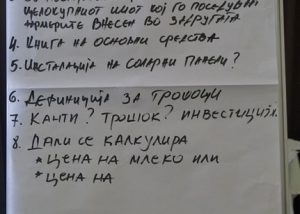 целокупниот имот кој го поседуваат
внесен во задругата
4. Книга на основни средства
5. Инсталација на соларни панели?
6. Дефиниција за трошоци
7. Канти? трошок? инвестиција.
8. Дали се калкулира
* цена на млеко или
* цена на